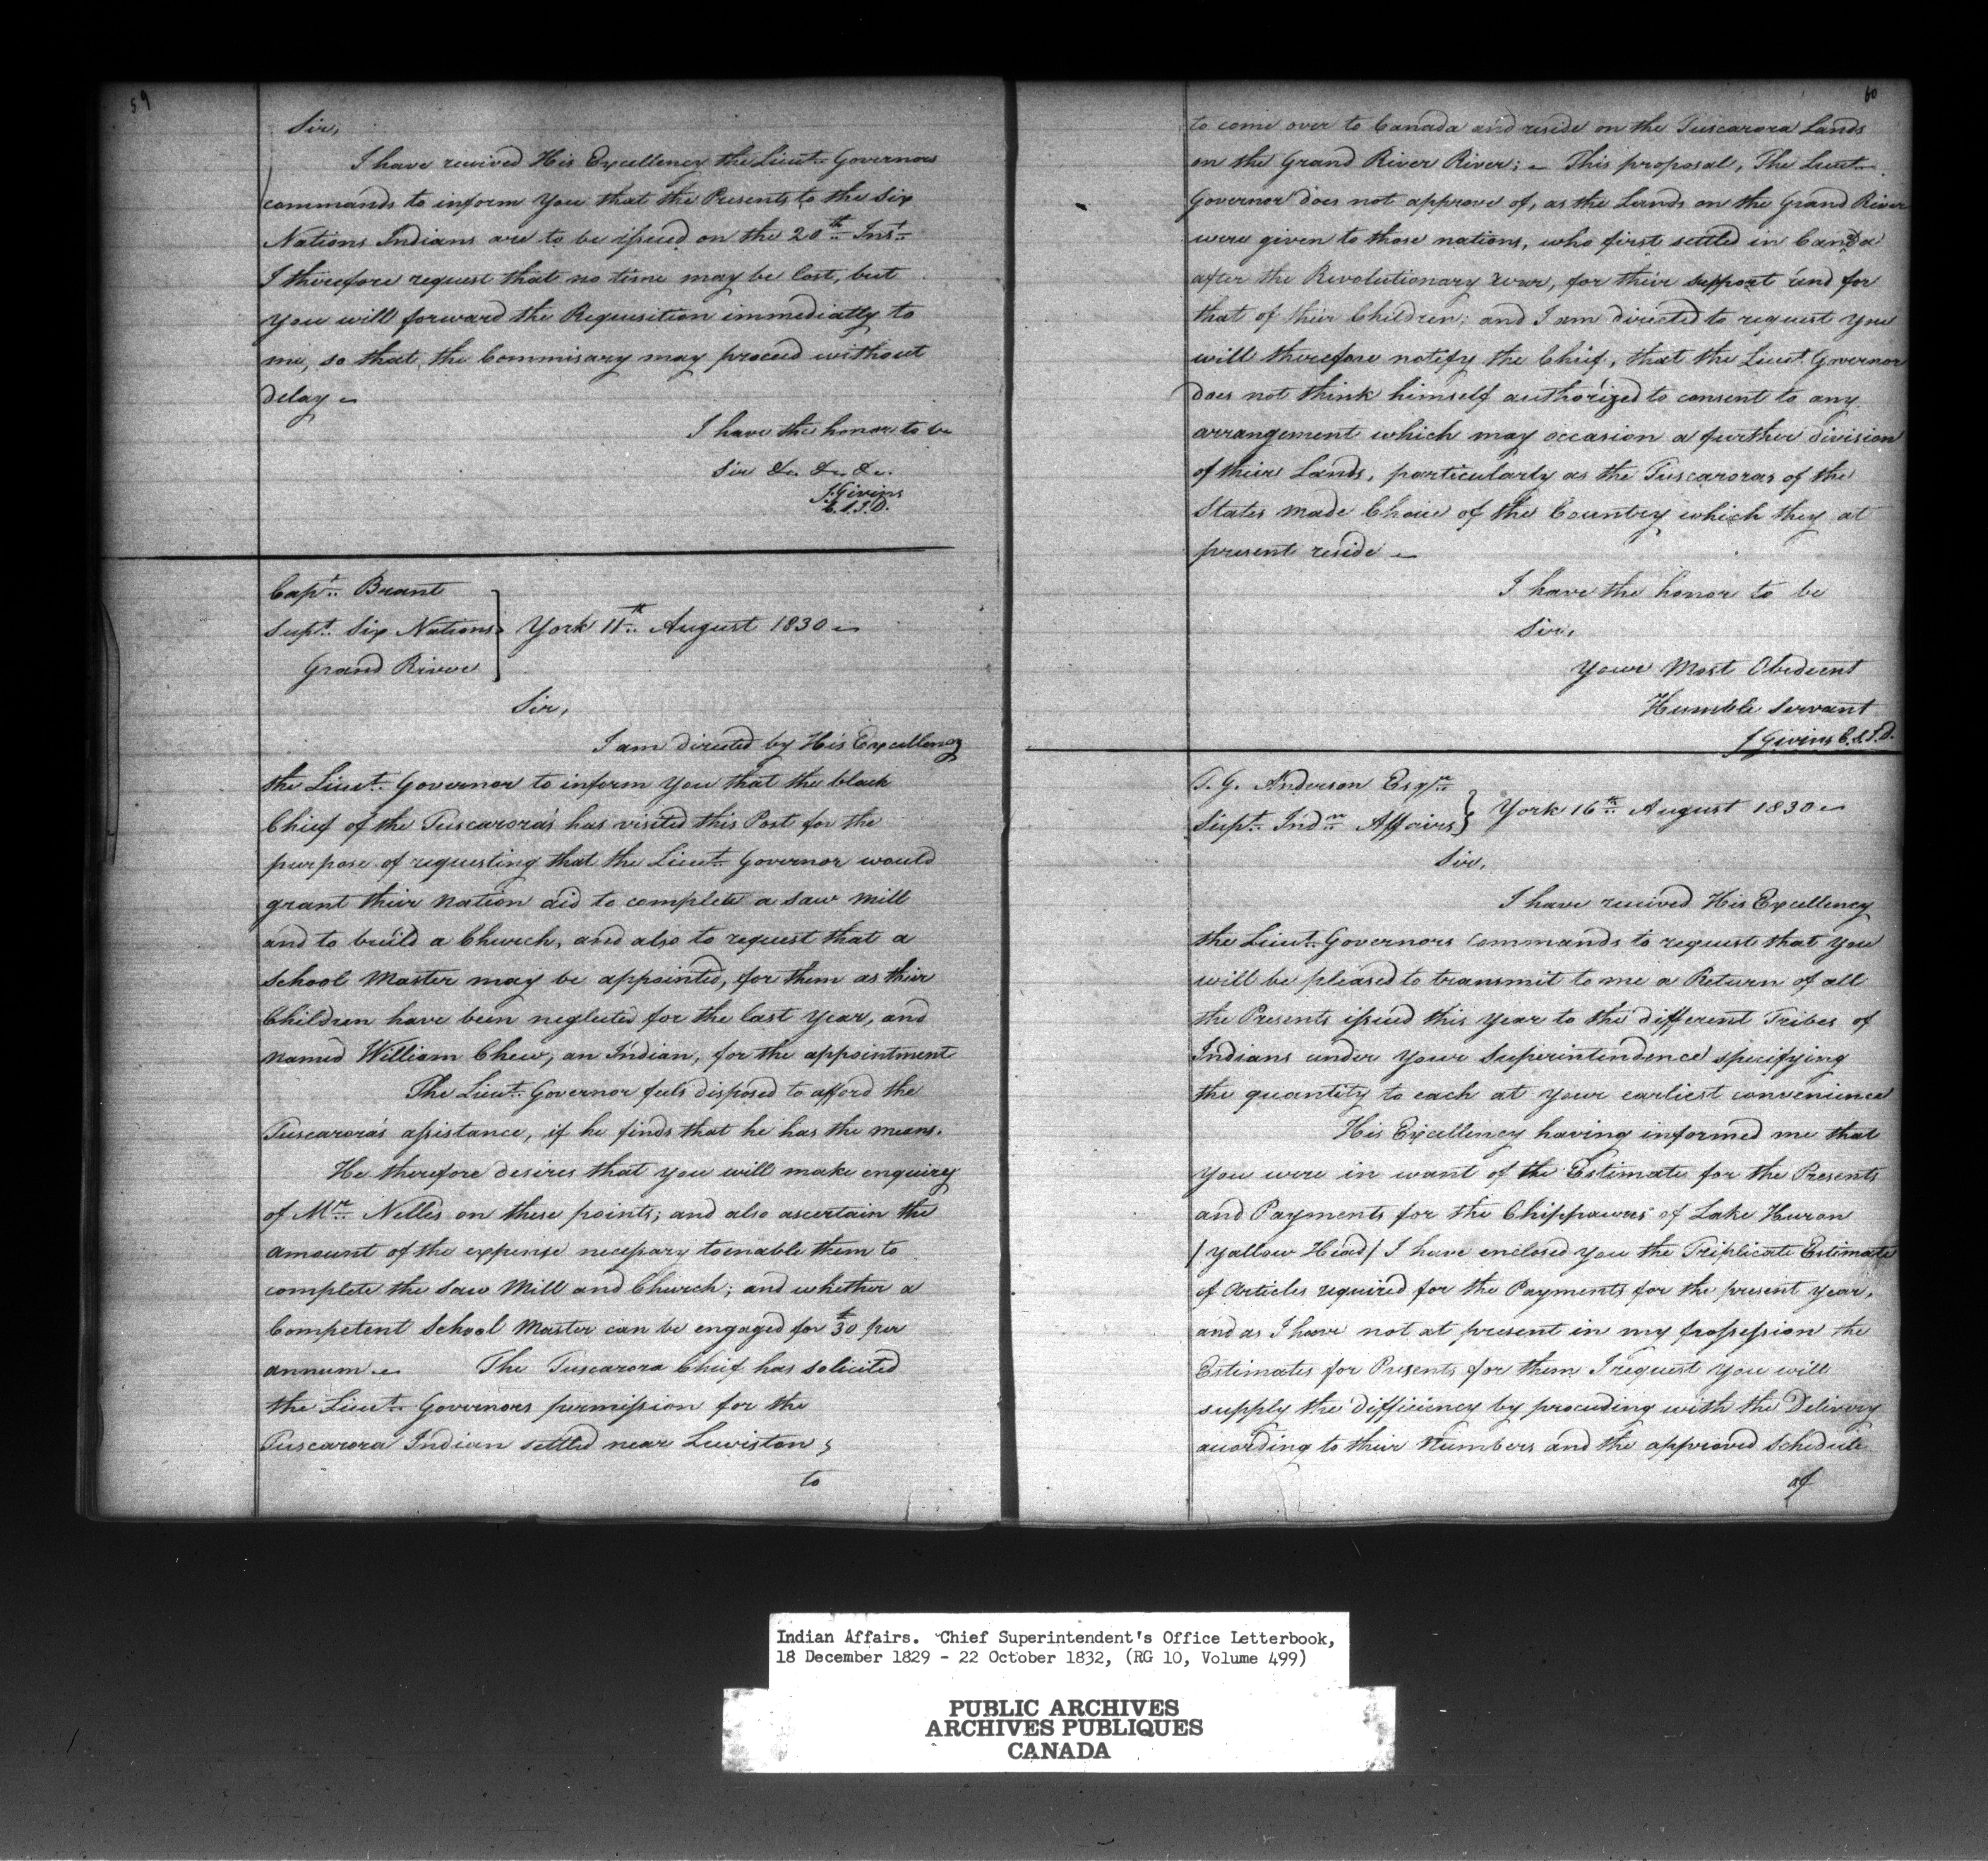 59
Sir,
I have received His Excellency the Lieut. Governors
commands to inform You that the Presents to the Six
Nations Indians are to be issued on the 20th Inst.
I therefore request that no time may be lost, but
you will forward the Requisition immediatly to
me, so that the Commisary may proceed without
delay
I have the honor to be
Sir &c. &c. &c.
J. Givins
C.S.I.D.
Capt. Brant
Supt. Six Nations
Grand River
York 11th August 1830
Sir,
I am directed by His Excellency
the Lieut. Governor to inform you that the black
Chief of the Tuscarora's has visited this Post for the
purpose of requesting that the Lieut. Governor would
grant their Nation aid to complete a Saw Mill
and to build a Church, and also to request that a
School Master may be appointed, for them as their
Children have been neglected for the last Year, and
named William Chew, an Indian, for the appointment
The Lieut. Governor feels disposed to afford the
Tuscarora's assistance, if he finds that he has the means.
He therefore desires that you will make enquirey
of Mr. Nelles on these points; and also ascertain the
amount of the expense necessary to enable them to
complete the Saw Mill and Church; and whether a
Competent School Master can be engaged for £30 per
annum The Tuscarora Chief has solicited
the Lieut. Governors permission for the
Tuscarora Indian settled near Lewiston,
to
60
to come over to Canada and reside on the Tuscarora Lands
on the Grand River River; This proposal, The Lieut.
Governor does not approve of, as the Lands on the Grand River
were given to those nations, who first settled in Canada
after the Revolutionary War, for their support and for
that of their Children; and I am directed to request you
will therefore notify the Chief, that the Lieut. Governor
does not think himself authorized to consent to any
arrangement which may occasion a further division
of their Lands, particularly as the Tuscaroras of the
States made Choice of the Country which they at
present reside
I have the honor to be
Sir,
Your Most Obedient
Humble Servant
J Givins C.S.I.D.
T. G. Anderson Esqre
Supt. Indn Affairs
York 16th August 1830
Sir,
I have received His Excellency
the Lieut. Governors Commands to request that you
will be pleased to transmit to me a Return of all
the Presents issued this Year to the different Tribes of
Indians under your Superintendence specifying
the quantity to each at your earliest convenience
His Excellency having informed me that
you were in want of the Estimate for the Presents
and Payments for the Chippawas of Lake Huron
/ Yallow Head / I have enclosed you the Triplicate Estimate
of Articles required for the Payments for the present year,
and as I have not at present in my possession the
Estimates for Presents for them I request you will
supply the difficiency by proceeding with the Delivery
according to their Numbers and the approved Schedule
of
Indian Affairs. Chief Superintendent's Office Letterbook,
18 December 1829 - 22 October 1832, (RG 10, Volume 499)
PUBLIC ARCHIVES
ARCHIVES PUBLIQUES
CANADA